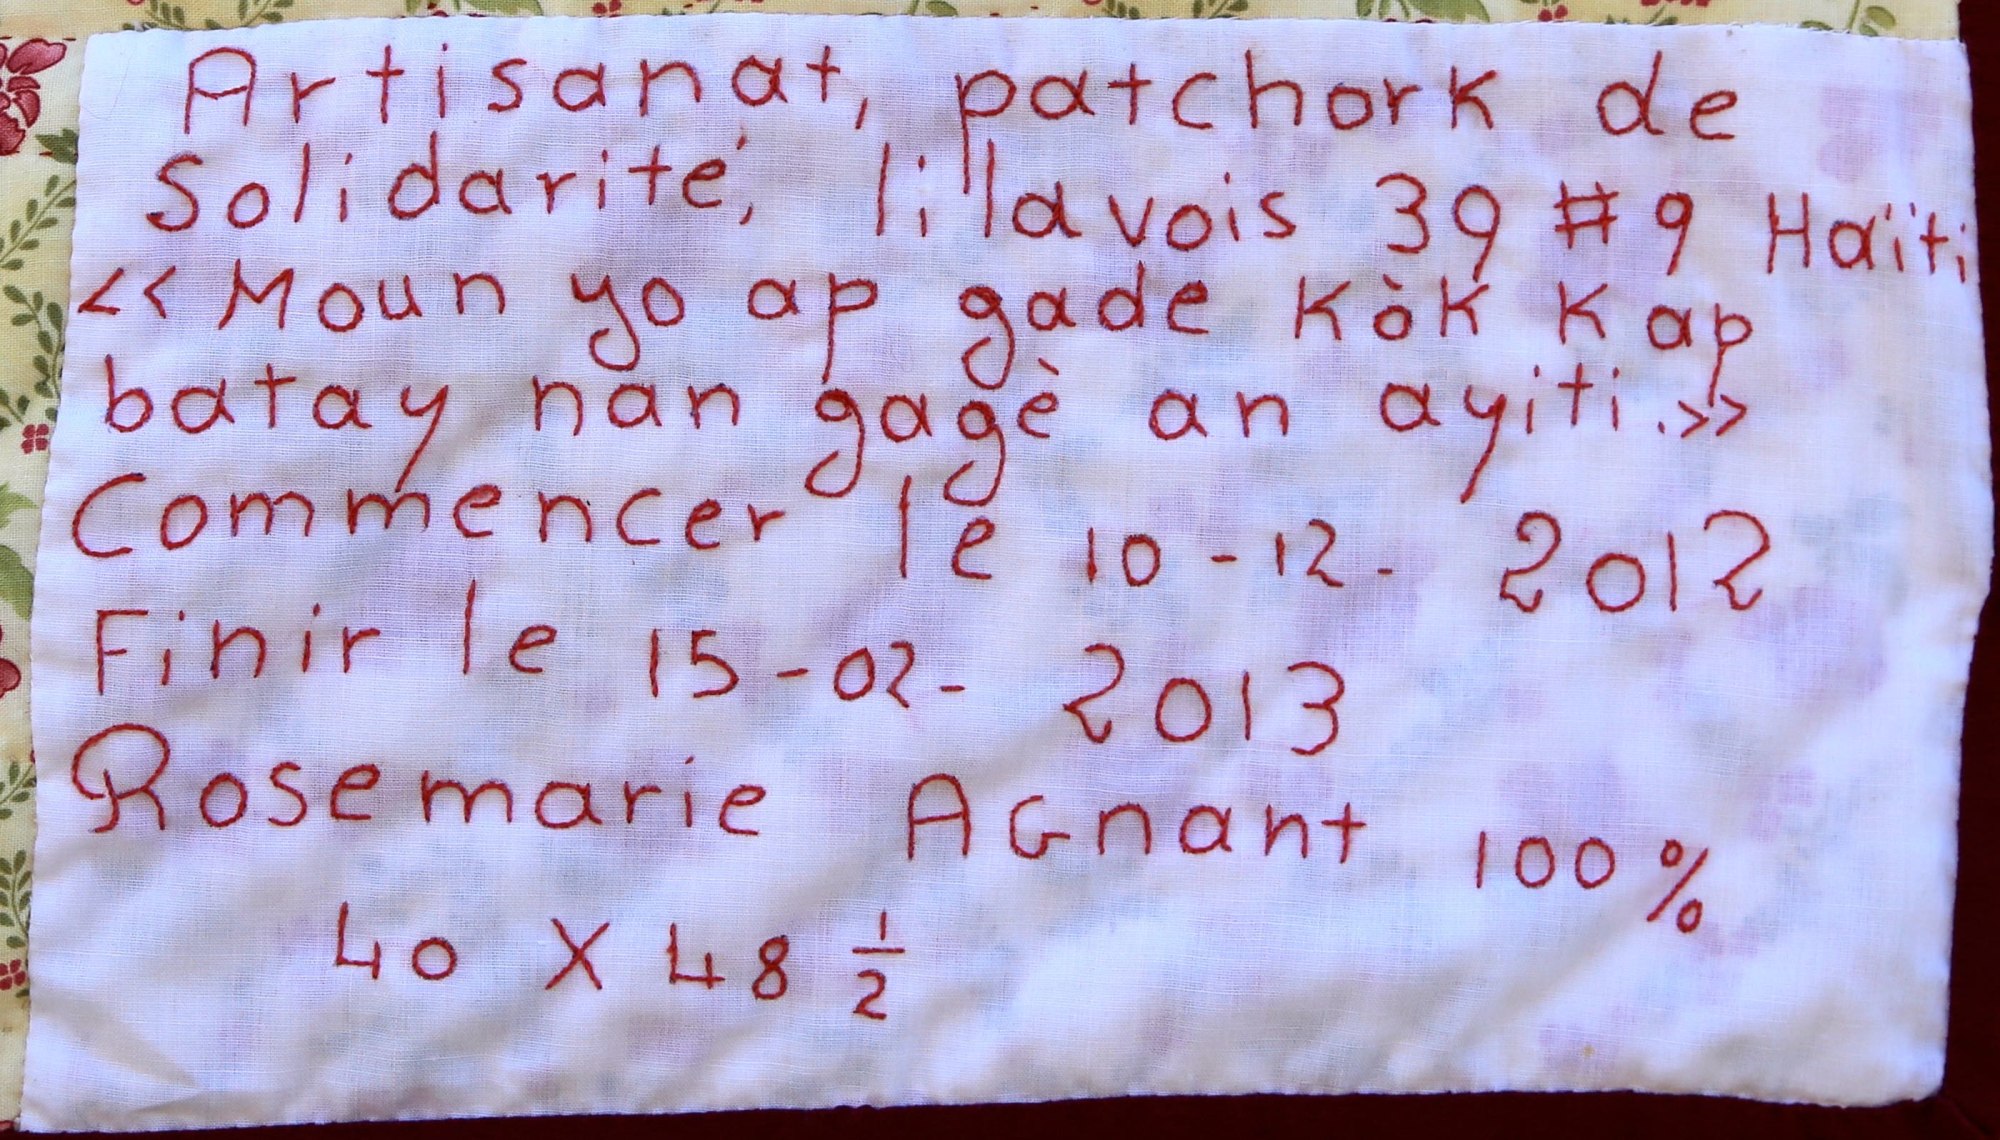 Artisanat, patchork de
Solidarité, lilavois 39 #9 Haïti
<< Moun yo ap gade kòk kap
batay nan gagè an ayiti.>>
Commencer le 10-12- 2012
Finir le 15-02- 2013
Rosemarie AGnant 100%
40 X 48 1/2